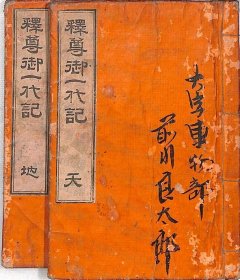 釋尊御一代記
天
釋尊御一代記
地
前川良太郎